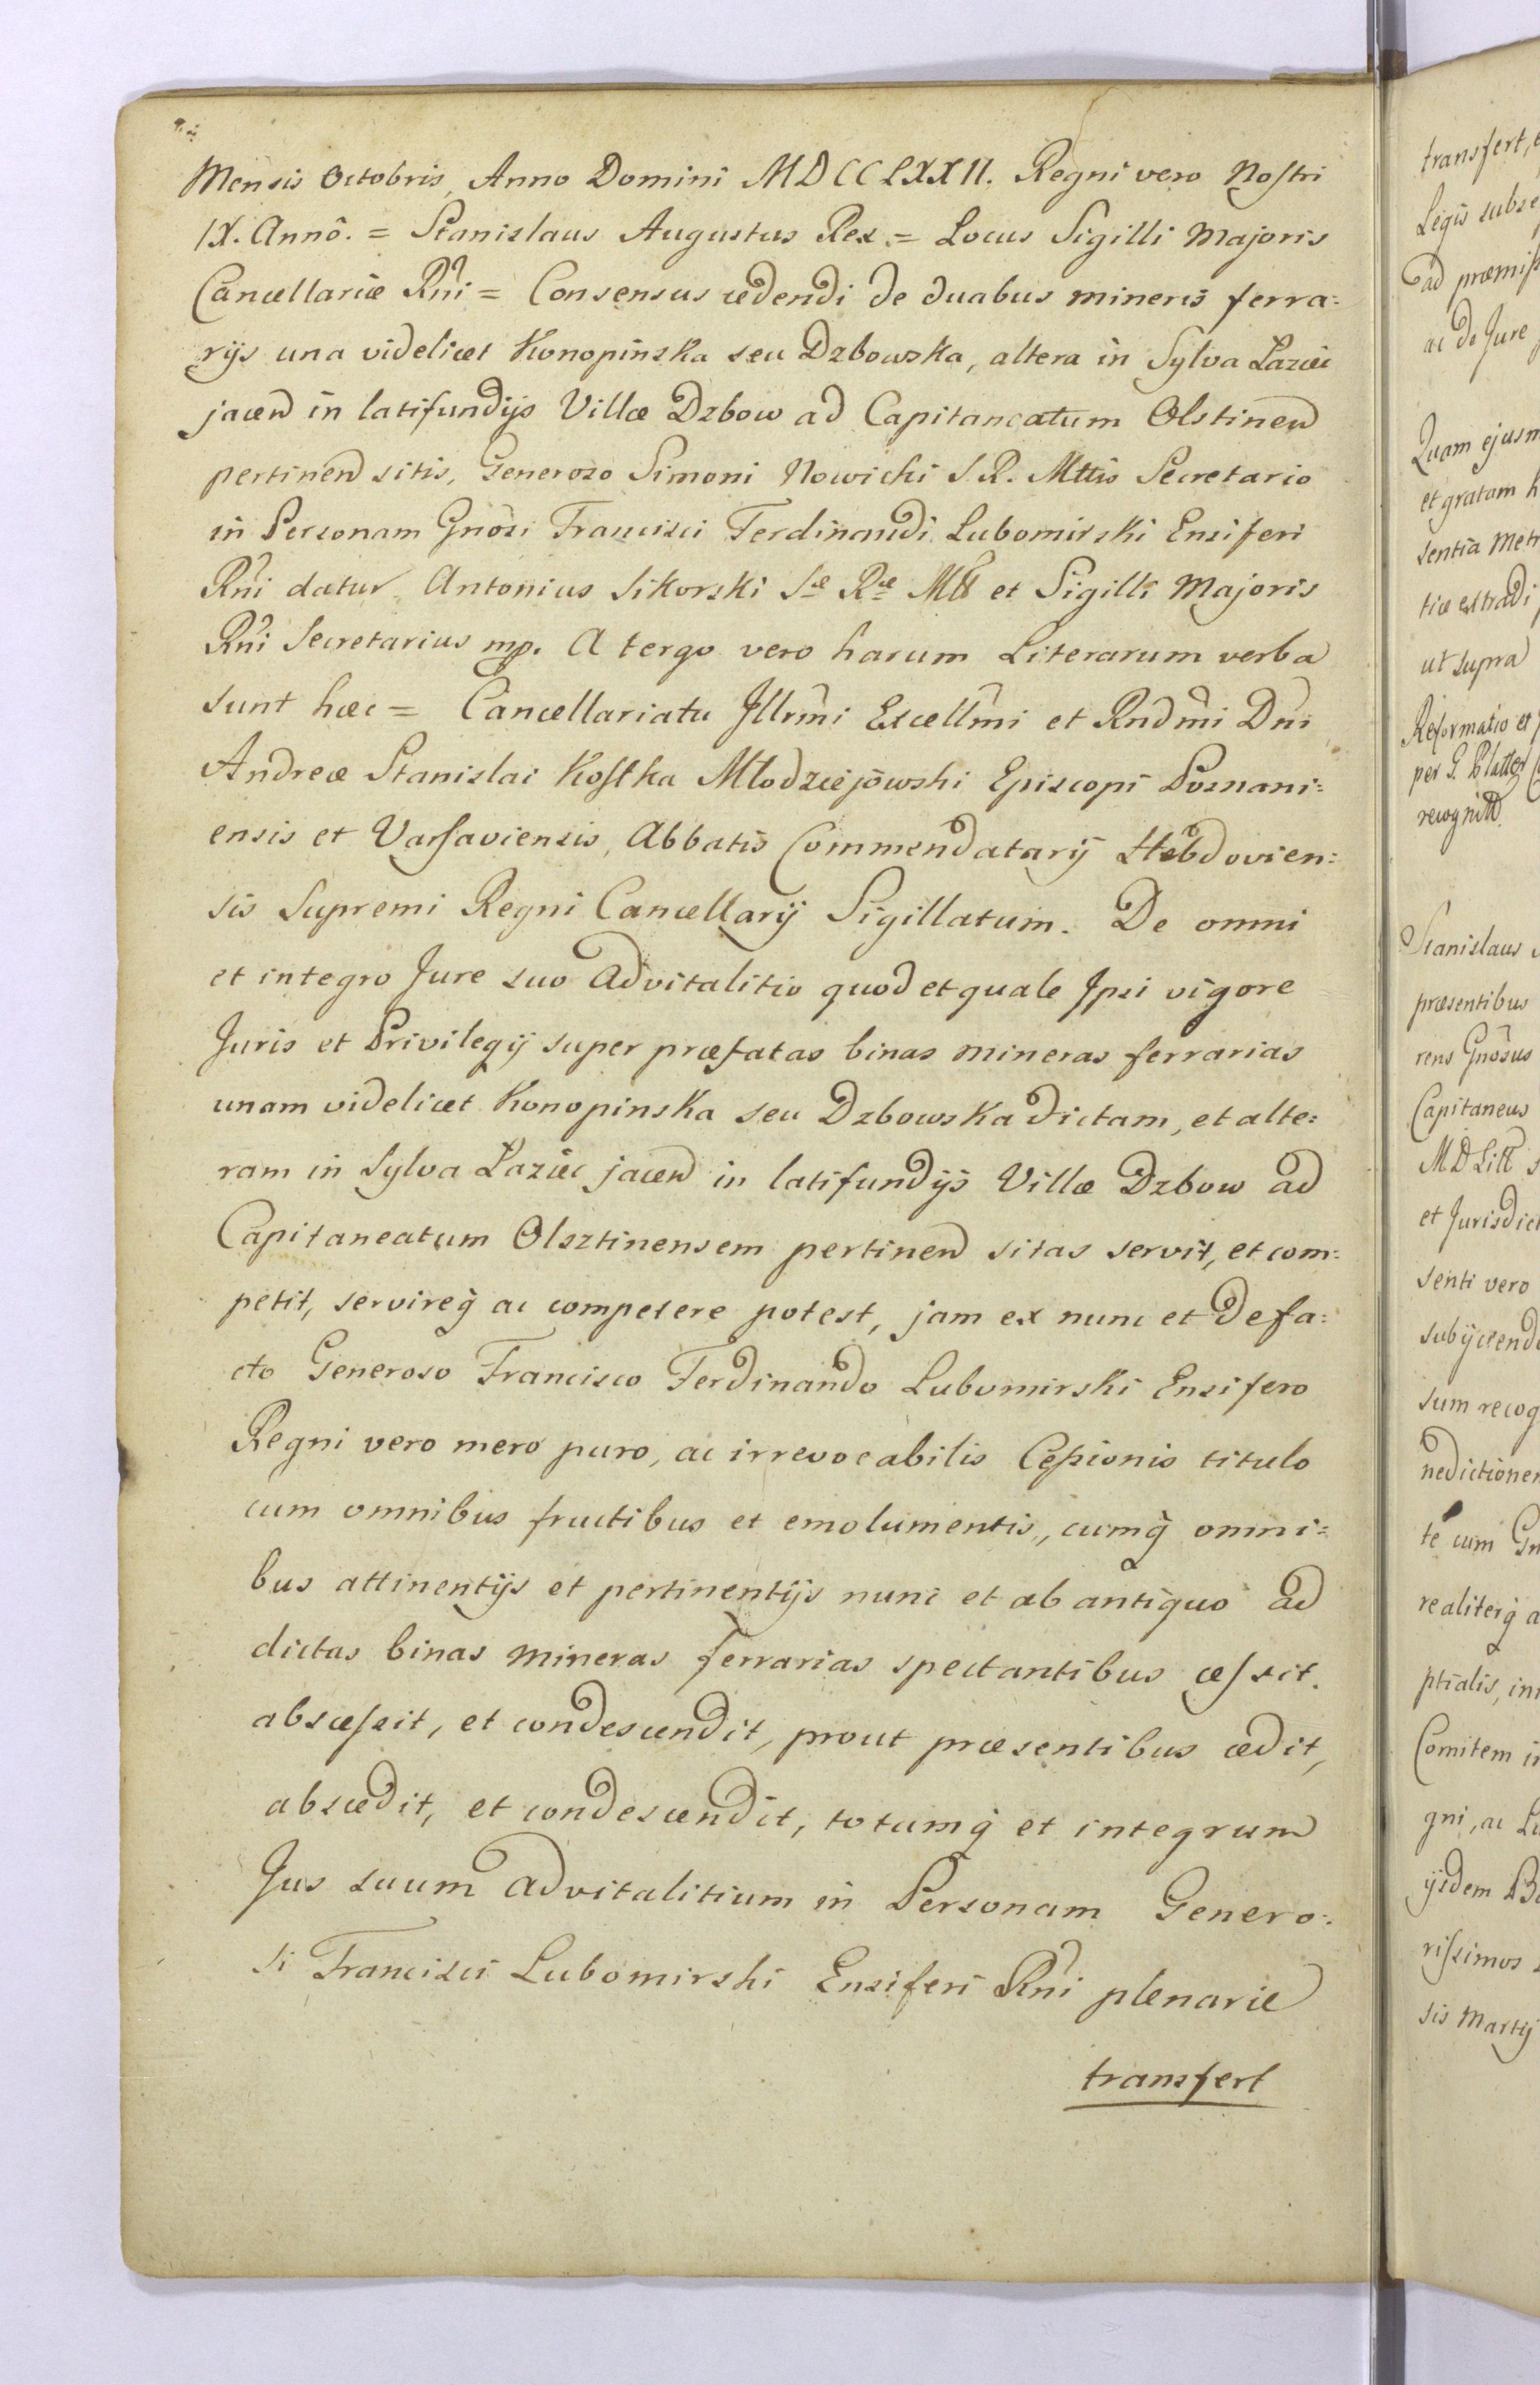 Mensis Octobris, Anno Domini MDCCLXXII. Regni vero Nostri
IX. Annô. = Stanislaus Augustus Rex = Locus Sigilli Majoris
Cancellariæ Rni = Consensus cedendi de duabus mineris ferra=
rijs una videlicet Konopinska seu Dzbowska, altera in Sylva Laziec
jacen in latifundijs Villæ Dzbow ad Capitaneatum Olstinen
pertinen sitis, Generoso Simoni Nowicki S.R. Mttis Secretario
in Personam Gnosi Francisci Ferdinandi Lubomirski Ensiferi
Rni datur. Antonius Sikorski Sæ Ræ Mtt et Sigilli Majoris
Rni Secretarius mp. A tergo vero harum Literarum verba
sunt hæc = Cancellariatu Illrmi Excellmi et Rndmi Dni
Andreæ Stanislai Kostka Mlodziejowski Episcopi Posnani=
ensis et Varsaviensis, Abbatis Commendatarij Hebdovien=
sis Supremi Regni Cancellarij Sigillatum. De omni
et integro Jure suo Advitalitio quod et quale Ipsi vigore
Juris et Privilegij super præfatas binas mineras ferrarias
unam videlicet Konopinska seu Dzbowska dictam, et alte=
ram in Sylva Laziec jacen in latifundijs Villæ Dzbow ad
Capitaneatum Olsztinensem pertinen sitas servit, et com=
petit, servireq̀ ac competere potest, jam ex nunc et de fa=
cto Generoso Francisco Ferdinando Lubomirski Ensifero
Regni vero mero puro, ac irrevocabilis Cessionis titulo
cum omnibus fructibus et emolumentis, cumq̀ omni=
bus attinentijs et pertinentijs nunc et ab antiquo ad
dictas binas mineras ferrarias spectantibus cessit.
abscessit, et condescendit, prout præsentibus cedit,
abscedit, et condescendit, totumq̀ et integrum
Jus suum Advitalitium in Personam Genero=
si Francisci Lubomirski Ensiferi Rni plenarie
transfert
transfert,
Legis subse
ad præmiss
ac de Jure
Quam ejusm
et gratam h
sentia Metr
tiæ extradi
ut supra
Reformatio et
per G. Platter
recognitt.
Stanislaus
præsentibus
rens Gnosus
Capitaneus
MDLitt
et Jurisdict
senti vero
subijcendo
sum recog
nedictionem
te cum Gn
realiterq̀ a
ptialis, in
Comitem i
gni, ac Li
ijsdem B
rissimos
sis Martij